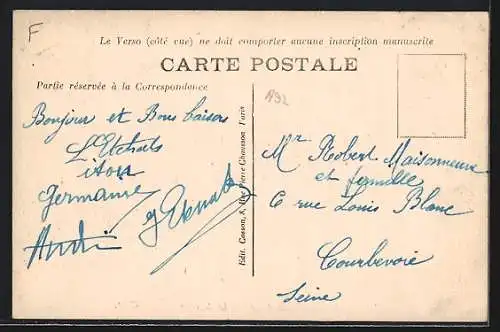 F
Le Verso (côté vue) ne doit comporter aucune inscription manuscrite
CARTE POSTALE
Partie réservée à la Correspondance
Bonjour et Bons baisers
Germaine
André
Edit. Cosson, 8, Rue Pierre Chausson Paris
Mr Robert Maisonneuve
et famille
6 rue Louis Blanc
Courbevoie
Seine